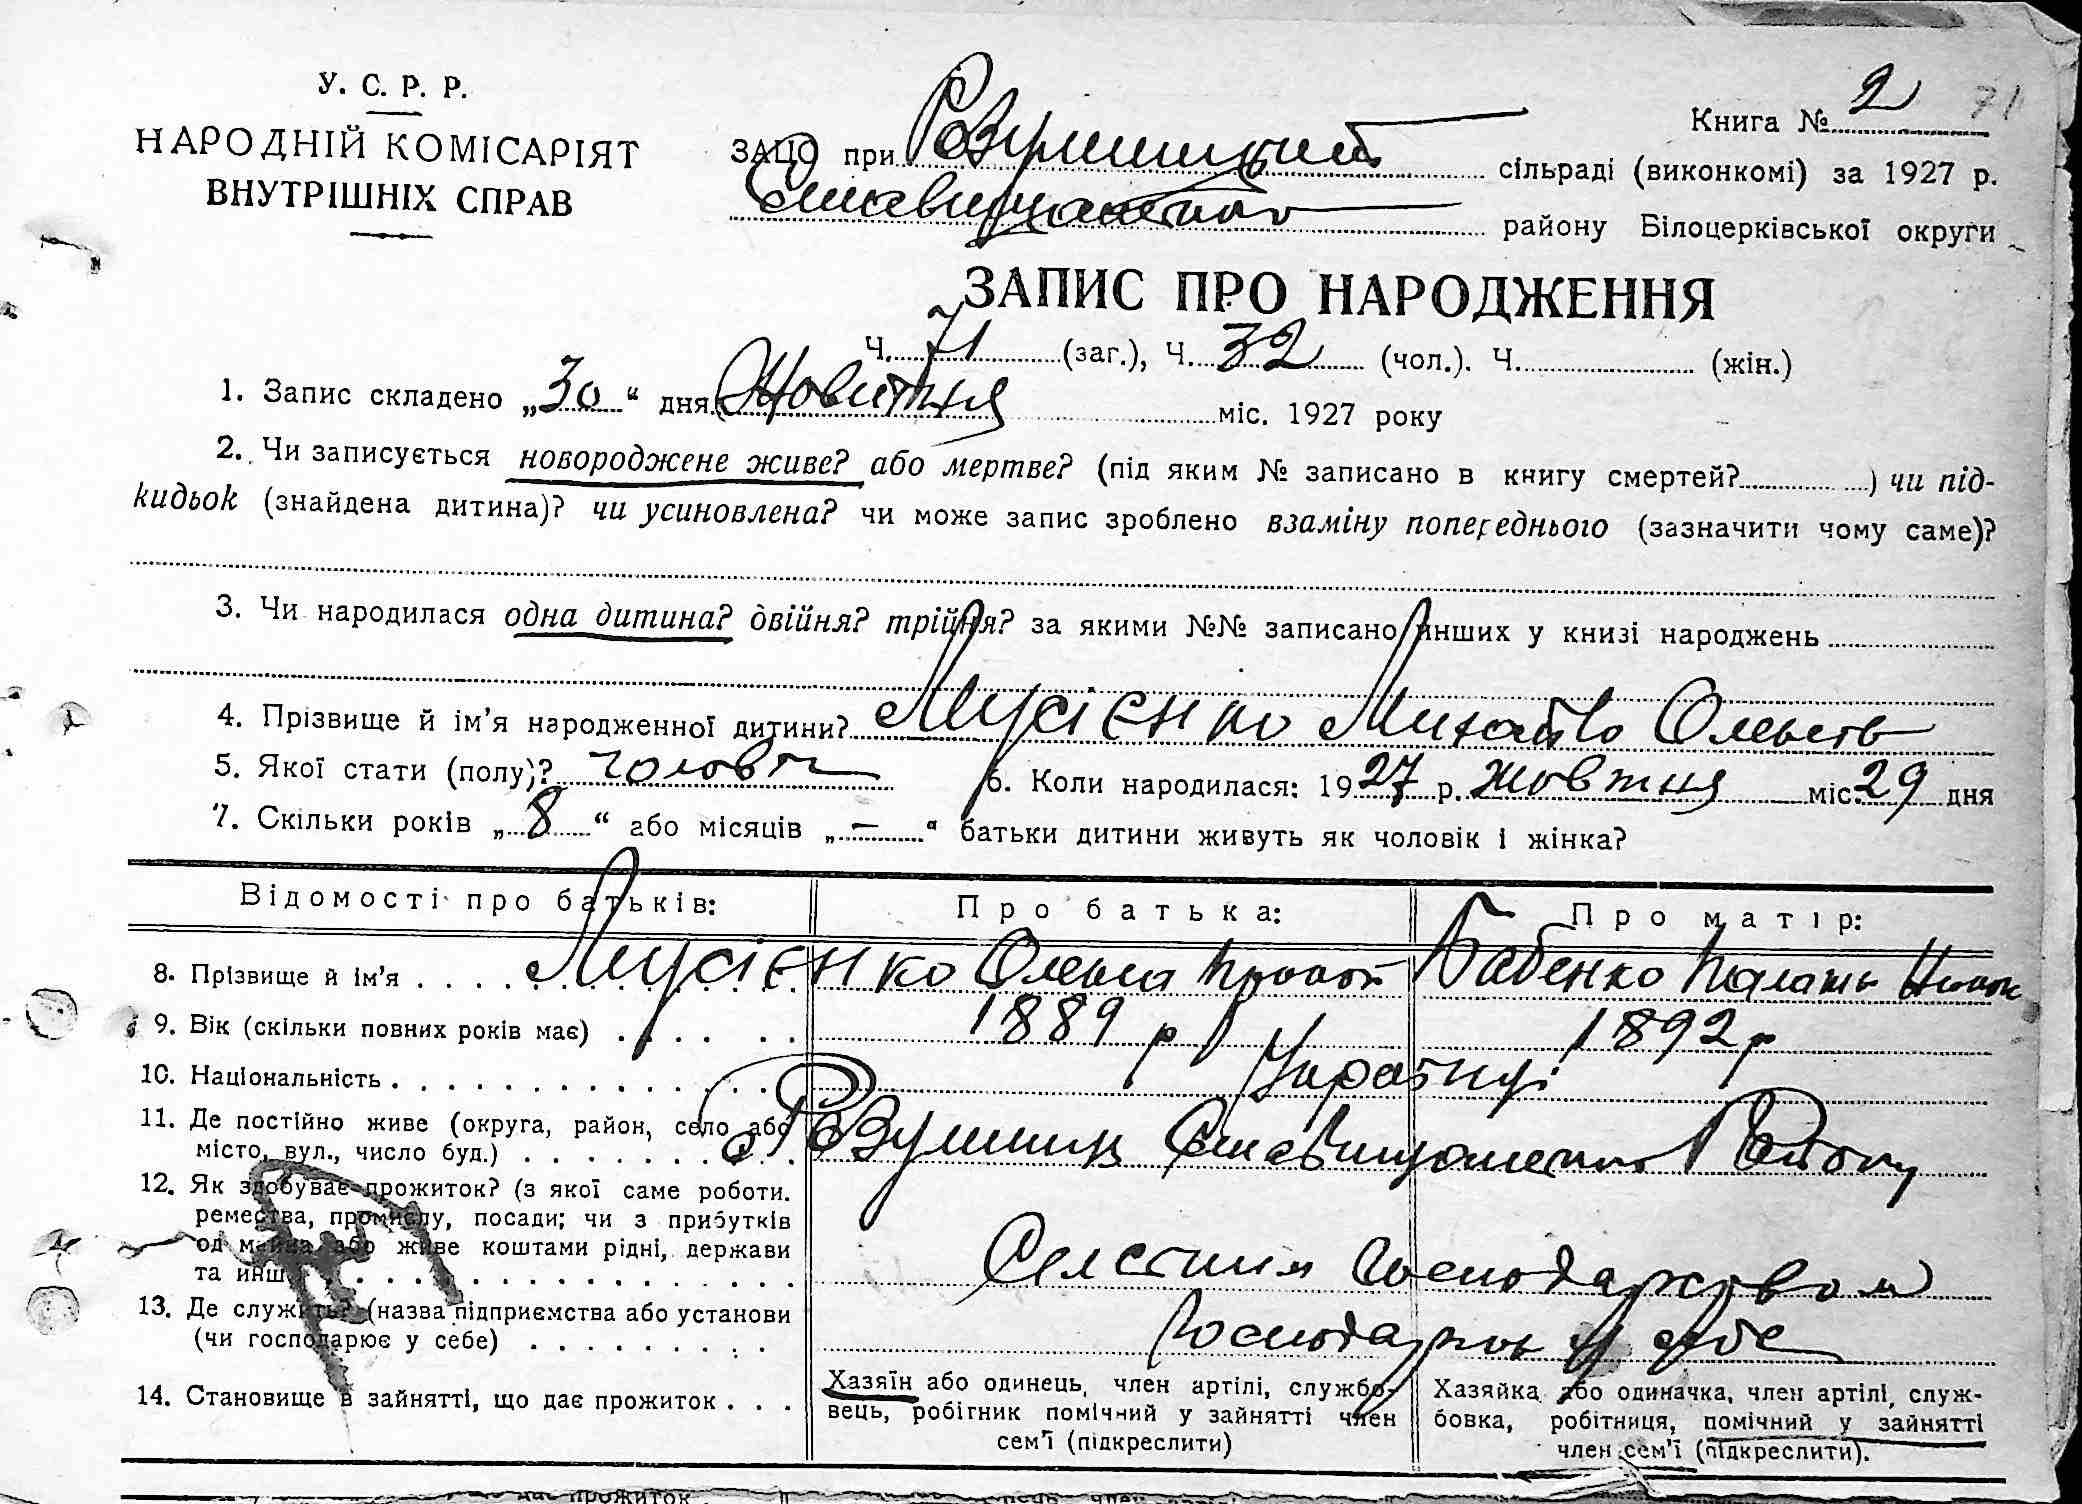 У. С. Р. Р.
НАРОДНІЙ КОМІСАРІЯТ
ВНУТРІШНІХ СПРАВ
Книга № 2 71
ЗАЦС при Розумницькій сільраді (виконкомі) за 1927 р.
Ставищанського району Білоцерківської округи
ЗАПИС ПРО НАРОДЖЕННЯ
Ч. 71 (заг.), Ч. 32 (чол.). Ч. (жін.)
1. Запис складено „30“ дня Жовтня міс. 1927 року
2. Чи записується новороджене живе? або мертве? (під яким № записано в книгу смертей? ) чи під-
кидьок (знайдена дитина)? чи усиновлена? чи може запис зроблено взаміну попереднього (зазначити чому саме)?
3. Чи народилася одна дитина? двійня? трійня? за якими №№ записано инших у книзі народжень
4. Прізвище й ім’я народженної дитини? Мусієнко Михайло Олексів
5. Якої стати (полу)? чоловік 6. Коли народилася: 1927 р. жовтня міс. 29 дня
7. Скільки років „8“ або місяців „—“ батьки дитини живуть як чоловік і жінка?
Відомості про батьків: Про батька: Про матір:
8. Прізвище й ім’я . . . . Мусієнко Олекса Прокоп Бабенко Палажк
9. Вік (скільки повних років має) . . . . . . 1889 р 1892 р
10. Національність . . . . . . . . . . . . . . Українці
11. Де постійно живе (округа, район, село або
місто, вул., число буд.) . . . . . . . . Розумниц Ставищанського Району
12. Як здобуває прожиток? (з якої саме роботи.
ремества, промислу, посади; чи з прибутків
од майна або живе коштами рідні, держави
та инш. . . . . . . . . . . . . . . . . Сельским Господарством
13. Де служить? (назва підприємства або установи
(чи господарює у себе) . . . . . . . . . . Господарює у себе
14. Становище в зайнятті, що дає прожиток . . .
Хазяїн або одинець, член артілі, службо-
вець, робігник помічний у зайнятті член
сем’ї (підкреслити)
Хазяйка або одиначка, член артілі, служ-
бовка, робітниця, помічний у зайнятті
член сем’ї (підкреслити).